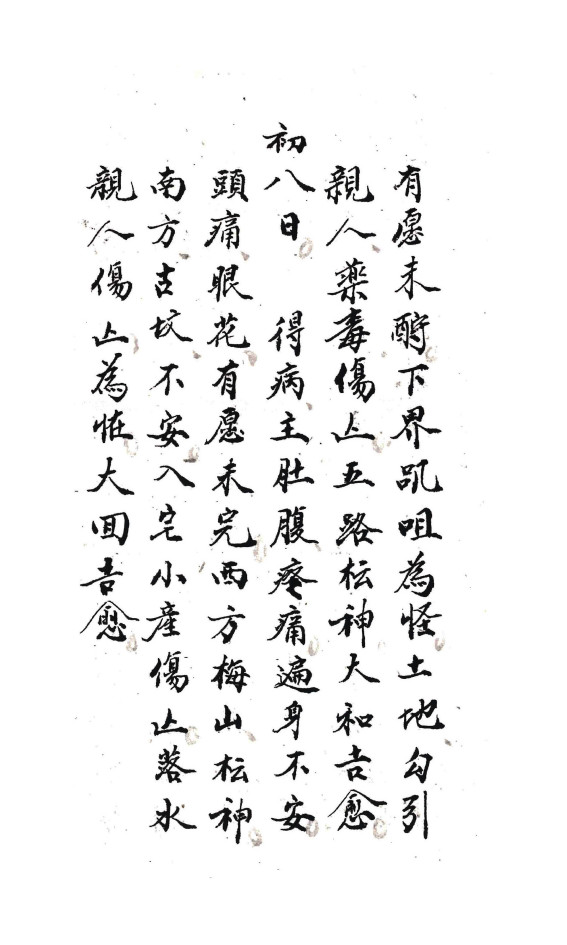 有愿未酧下界咒咀為怪土地勾引
親人藥毒傷亾五路枟神大和吉愈
初八日 得病主肚腹疼痛遍身不安
頭痛眼花有愿未完西方梅山枟神
南方古坟不安入宅小產傷亾落水
親人傷亾為怪大囬吉愈